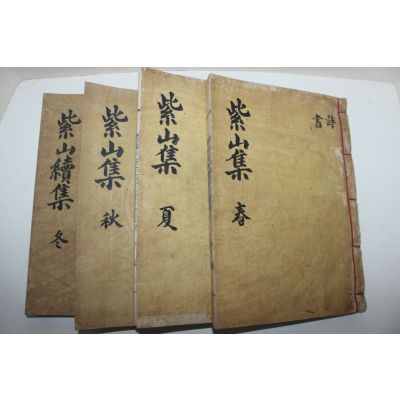 紫山集 春
詩
書
紫山集 夏
紫山集 秋
紫山續集 冬